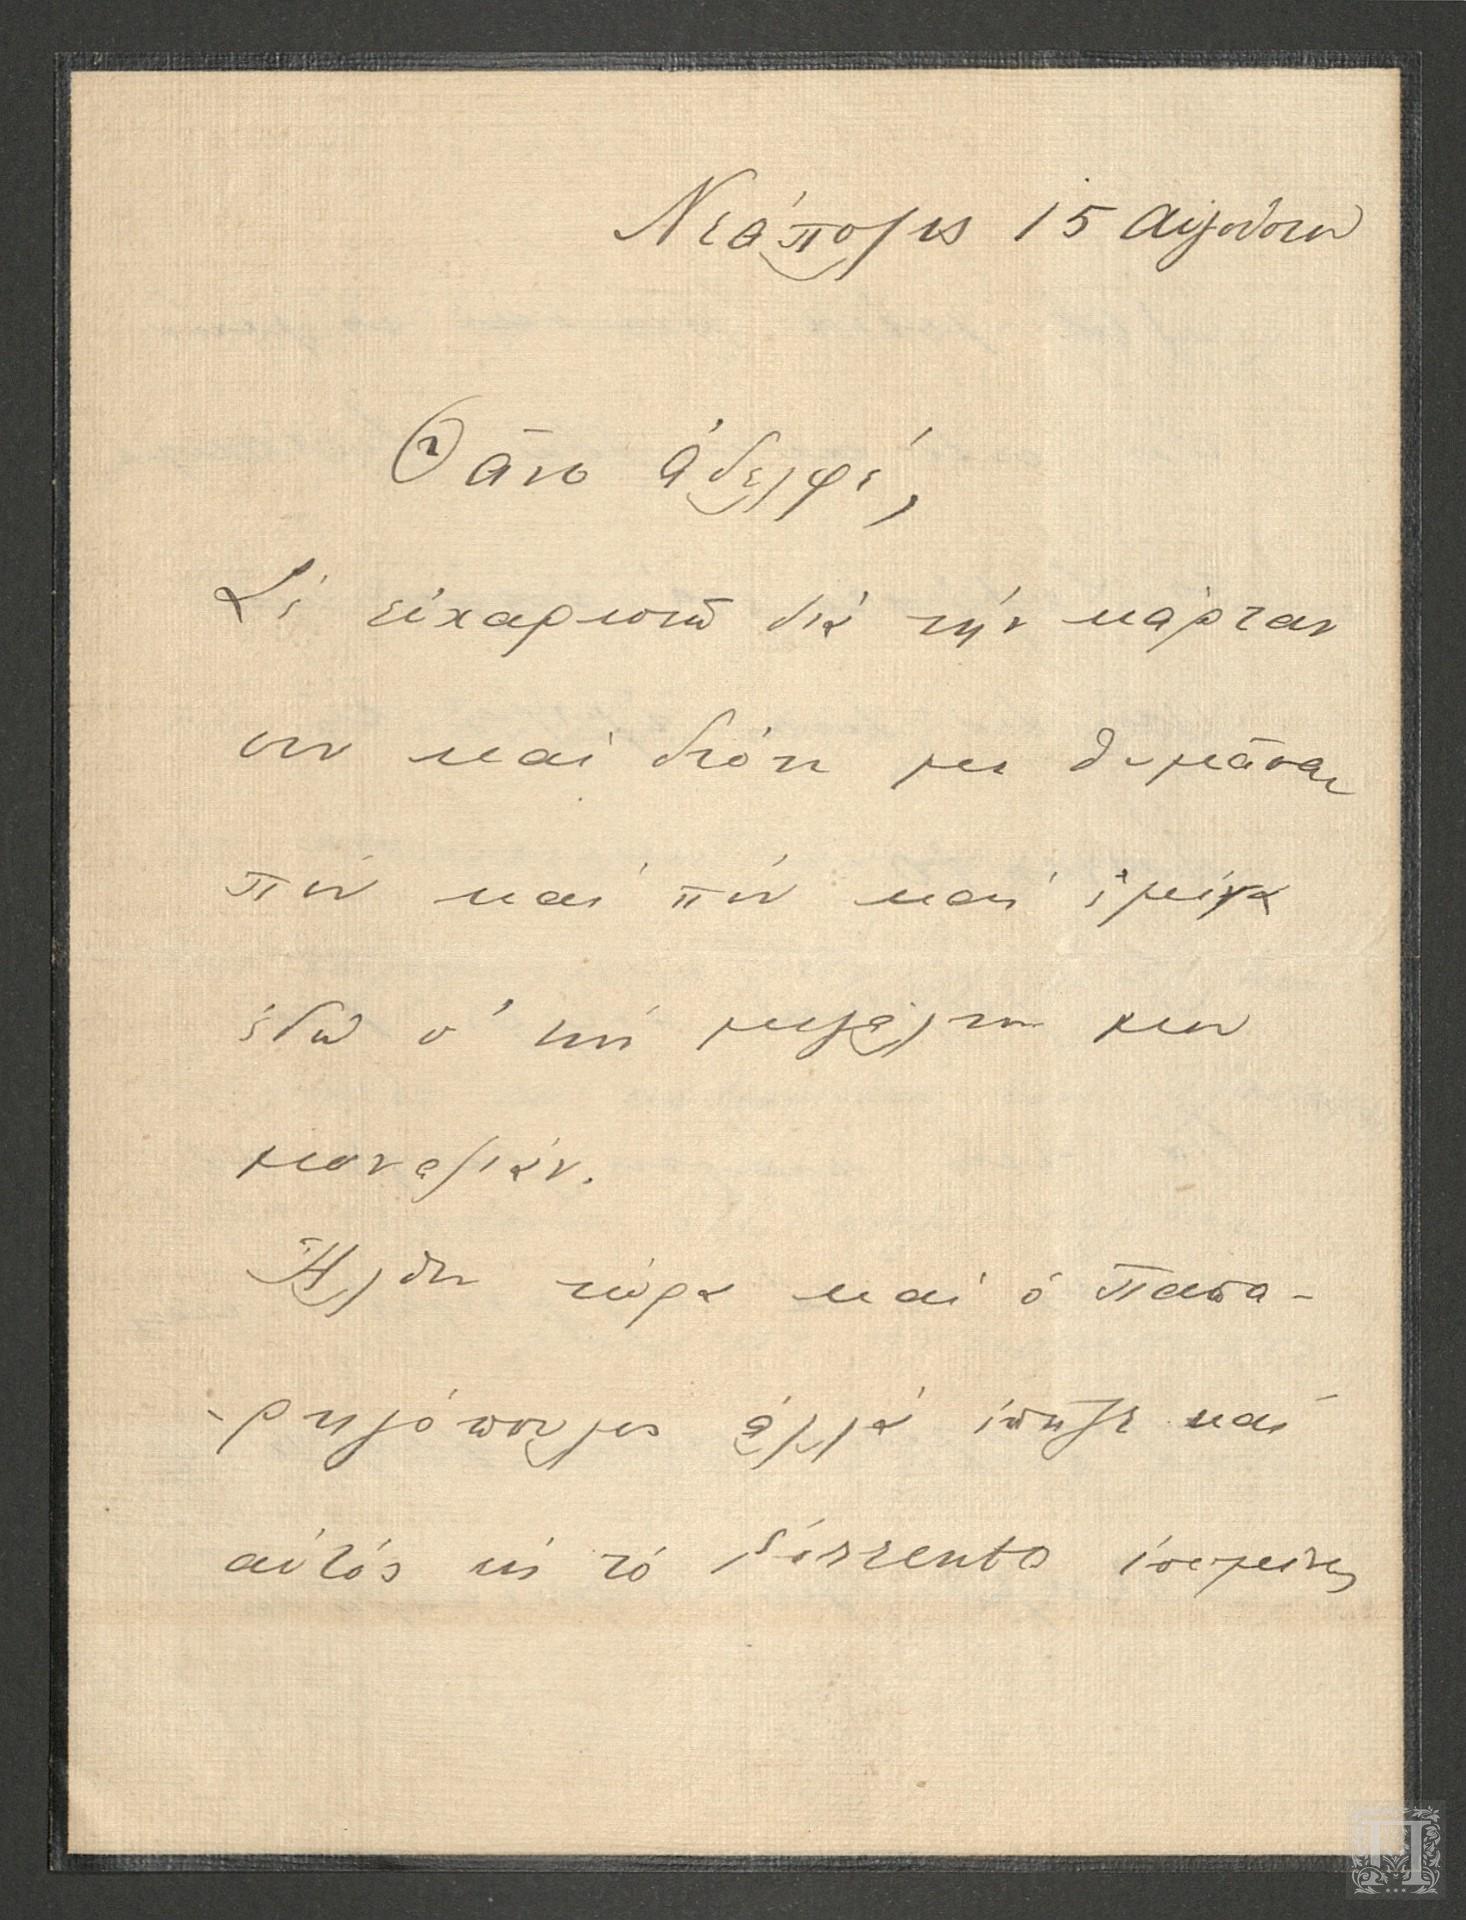 Νεάπολις 15 Αὐγούστου
Θᾶνο ἀδελφέ,
Σὲ εὐχαριστῶ διὰ τὴν κάρταν
σου καὶ διότι με θυμᾶσαι
ποῦ καὶ ποῦ καὶ ἐμένα
ἐδῶ σ' τὴ μεγάλην μου
μοναξιάν.
Ἦλθε τώρα καὶ ὁ Παπα-
-ρηγόπουλος ἀλλὰ ἐπῆγε καὶ
αὐτός εἰς τό Sorrento